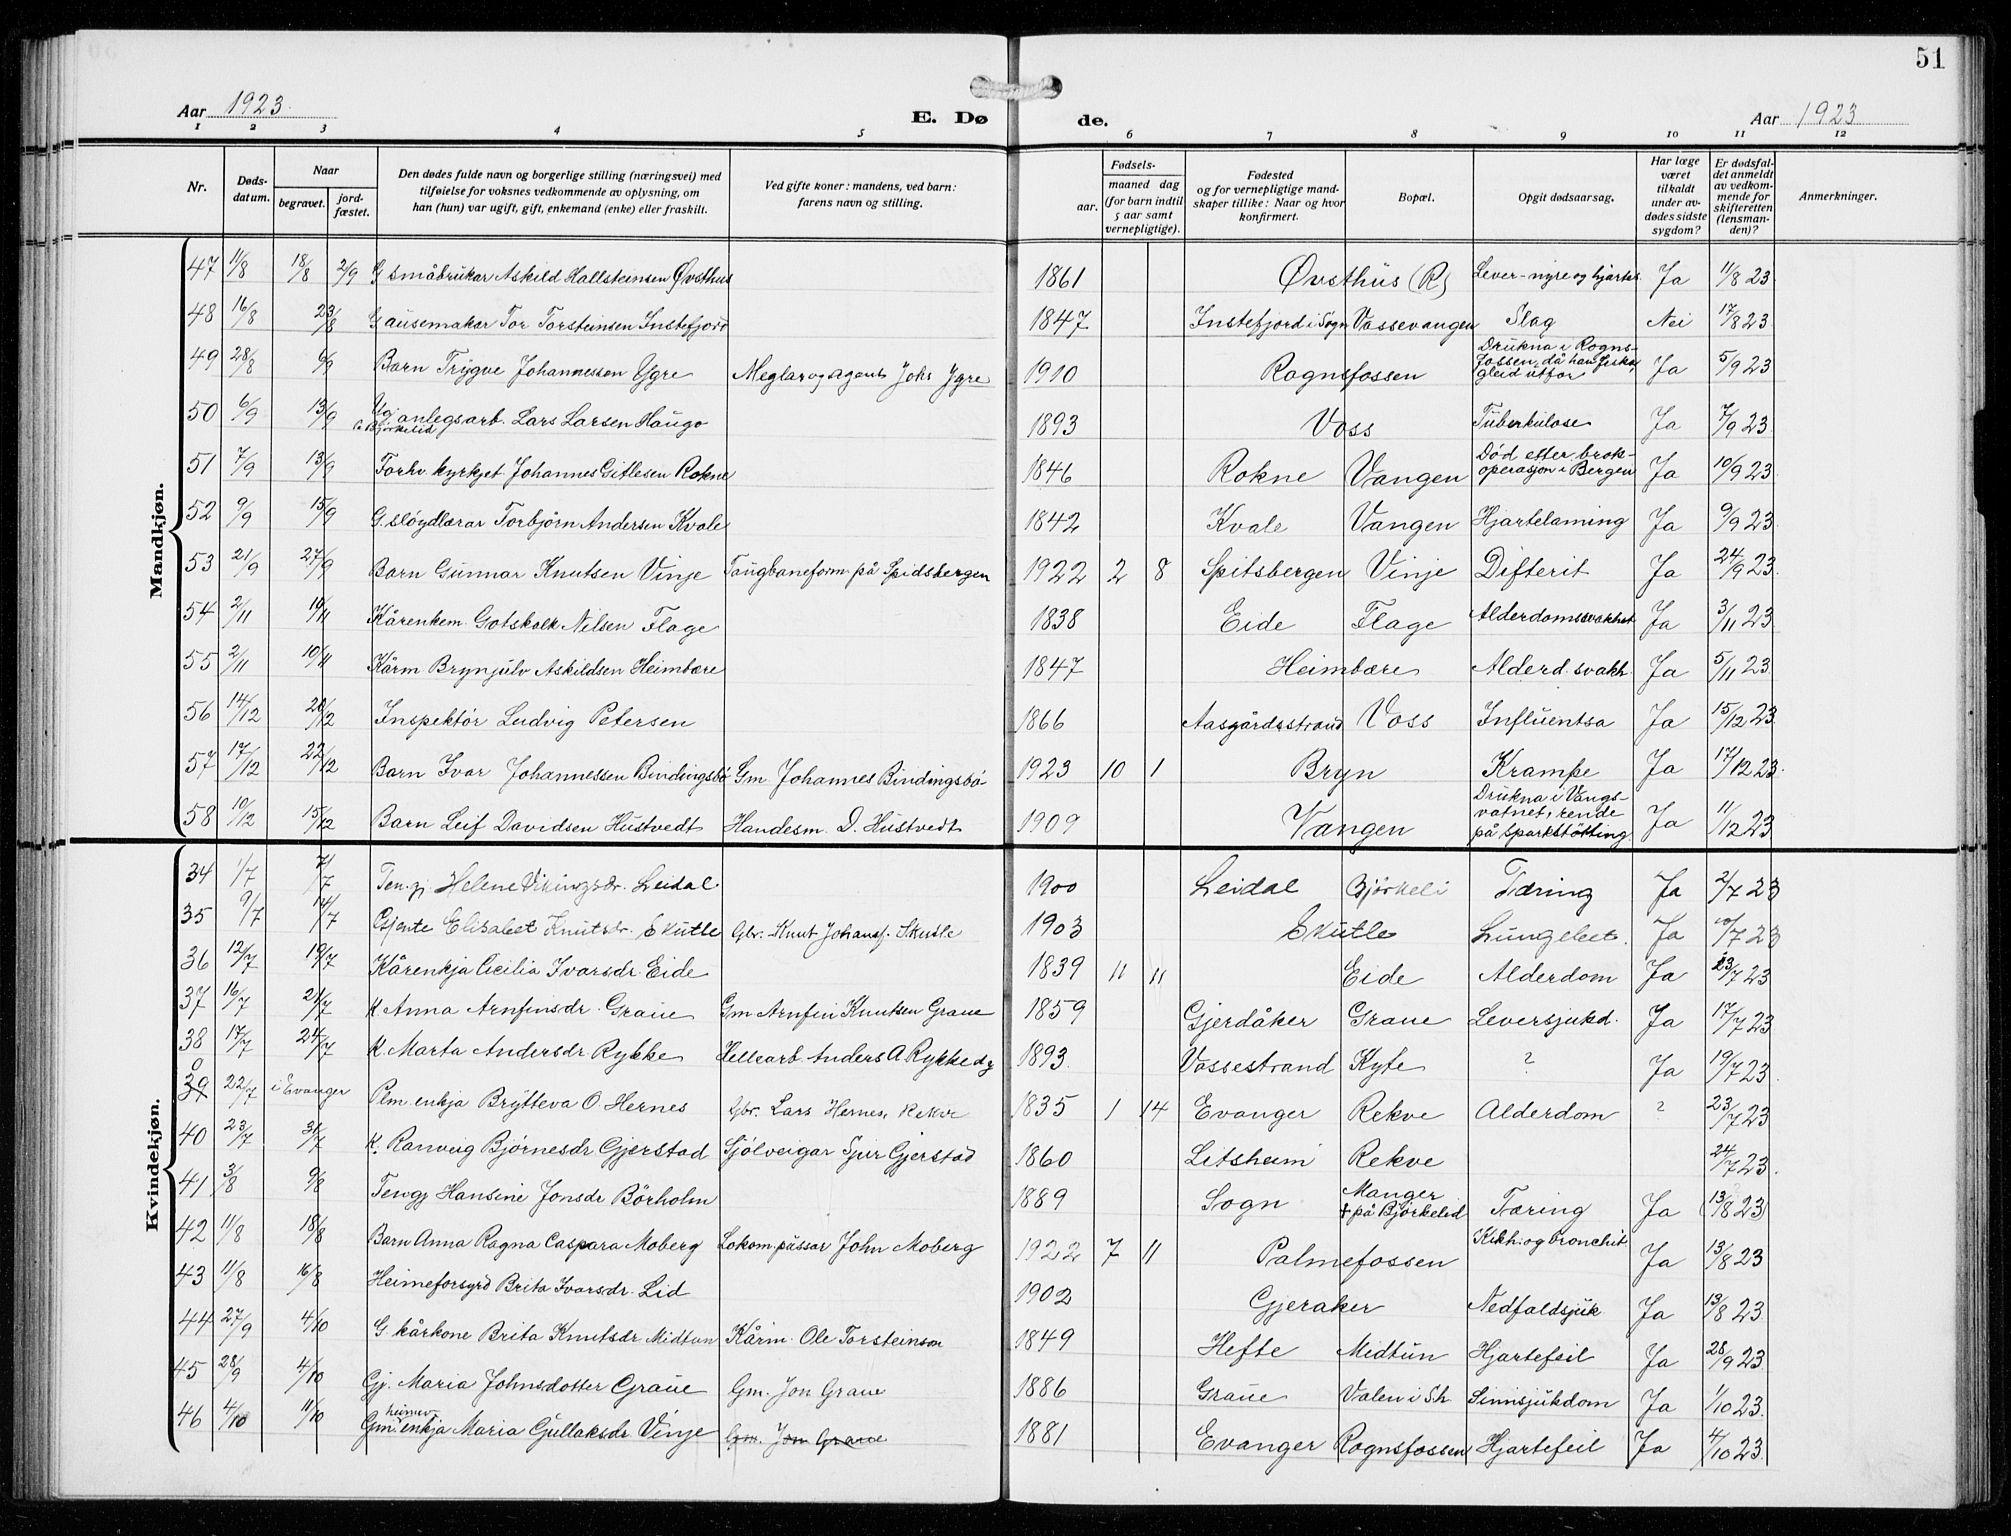 51
Aar 1923. E. Dø de. Aar 1923
1 2 3 4 5 6 7 8 9 10 11 12
Nr.
Døds-
datum.
Naar
begravet.
jord-
fæstet.
Den dødes fulde navn og borgerlige stilling (næringsvei) med
tilføielse for voksnes vedkommende av oplysning, om
han (hun) var ugift, gift, enkemand (enke) eller fraskilt.
Ved gifte koner: mandens, ved barn:
farens navn og stilling.
Fødsels-
aar.
maaned dag
(for barn indtil
5 aar samt
vernepligtige).
Fødested
og for vernepligtige mand-
skaper tillike: Naar og hvor
konfirmert.
Bopæl.
Opgit dødsaarsag.
Har læge
været
tilkaldt
under av-
dødes sidste
sygdom?
Er dødsfal-
det anmeldt
av vedkom-
mende for
skifteretten
(lensman-
den)?
Anmerkninger.
Mandkjøn.
47 11/8 18/8 2/9 G småbrukar Askild Hallsteinsen Øvsthus 1861 Øvsthus (R) Lever-nyre og hjartes. Ja 11/8 23
48 16/8 23/8 Tor Torsteinsen Instefjord 1847 Instefjord i Sogn Vossevangen Slag Nei 17/8 23
49 28/8 6/9 Barn Trygve Johannessen Ygre Meglar og agent Johs Ygre 1910 Rognsfossen Drukna i Rogns-
fossen, då han fiska,
gleid utfor Ja 5/9 23
50 6/9 13/9 Ug. anlegsarb. Lars Larsen Haugo
Bjørkelid 1893 Voss Tuberkulose Ja 7/9 23
51 7/9 13/9 Forhv. kyrkjet Johannes Gitlesen Rokne 1846 Rokne Vangen Død etter brok-
operasjon i Bergen Ja 10/9 23
52 9/9 15/9 G. sløydlærar Torbjörn Andersen Kvale 1842 Kvale Vangen Hjartelaming Ja 9/9 23
53 21/9 27/9 Barn Gunnar Knutsen Vinje Taugbaneform. på Spidsbergen 1922 2 8 Spitsbergen Vinje Difterit Ja 24/9 23
54 2/11 10/11 Kårenkem. Gotskalk Nilsen Flage 1838 Eide Flage Alderdomssvakhet Ja 3/11 23
55 2/11 10/11 Kårm Brynjulv Askildsen Heimbære 1847 Heimbære Alderd. svakh. Ja 5/11 23
56 14/12 20/12 Inspektör Ludvig Petersen 1866 Aasgårdsstrand Voss Influentsa Ja 15/12 23
57 17/12 22/12 Barn Ivar Johannessen Bindingsbö Gm. Johannes Bindingsbö 1923 10 1 Bryn Krampe Ja 17/12 23
58 10/12 15/12 Barn Leif Davidsen Hustvedt Handesm. D. Hustvedt 1909 Vangen Drukna i Vangs-
vatnet, rende
på sparkstötting Ja 11/12 23
Kvindekjøn.
34 1/7 7/7 Ten. gj Helene Vikingsdr. Leidal 1900 Leidal Björkeli Tæring Ja 2/7 23
35 9/7 14/7 Gjente Elisabet Knutsdr. Skutle Gbr. Knut Johansf. Skutle 1903 Skutle Lungebet. Ja 10/7 23
36 12/7 19/7 Kårenkja Cecilia Ivarsdr. Eide 1839 11 11 Eide Alderdom Ja 23/7 23
37 16/7 21/7 K Anna Arnfinsdr. Graue Gm Arnfin Knutsen Graue 1859 Gjerdåker Graue Leversjukd. Ja 17/7 23
38 17/7 24/7 K. Marta Andersdr Rykke Hellearb. Anders A. Rykke 1893. Vossestrand Kyte ? Ja 19/7 23
39 22/7 i Evanger Plm. enkja Brytteva O. Hernes Gbr. Lars Hernes, Rekve 1835 1 14 Evanger Rekve Alderdom ? 23/7 23
40 23/7 31/7 K. Ranveig Bjørnesdr Gjerstad Sjölveigar Sjur Gjerstad 1860 Litsheim Rekve 24/7 23.
41 3/8 9/8 Tengj Hansine Jonsdr Börholm 1889 Sogn Manger
+ på Bjørkelid Tæring Ja (13/8 23)
42 11/8 18/8 Barn Anna Ragna Caspara Moberg Lokom. pussar John Moberg 1922 7 11 Palmefossen Kikh. og bronchit Ja 13/8 23
43 11/8 16/8 Heimeforsyrd Brita Ivarsdr. Lid 1902 Gjeraker Nedfaldsjuk Ja 13/8 23
44 27/9 4/10 G kårkone Brita Knutsdr. Midtun Kårm. Ole Torsteinson 1849 Hefte Midtun Hjartefeil Ja 28/9 23
45 28/9 4/10 Gj. Maria Johnsdotter Graue Gm. Jon Graue 1886 Graue Valen i S.h. Sinnsjukdom Ja 1/10 23.
46 4/10 11/10 Gm. enkja Maria Gullaksdr. Vinje Gm. Jon Graue 1881 Evanger Rognsfossen Hjartefeil Ja 4/10 23